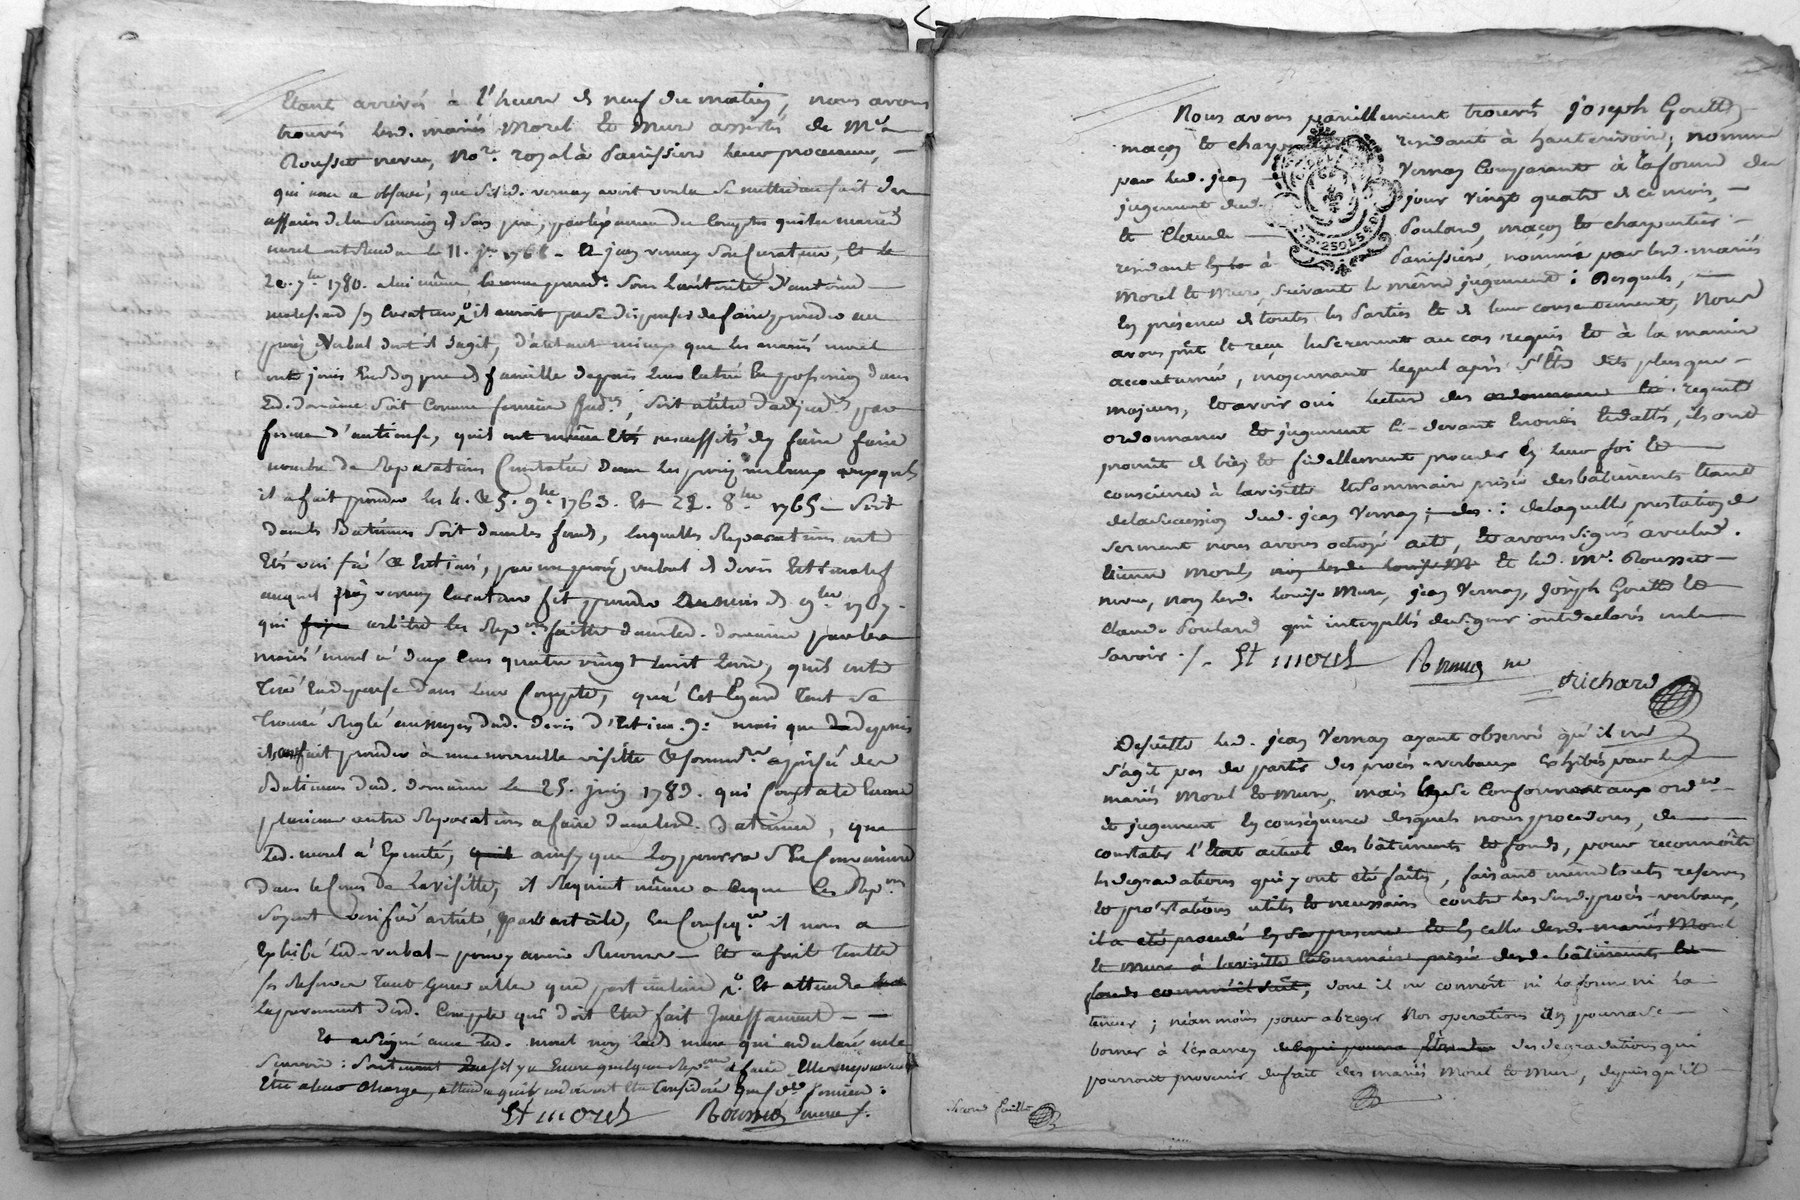 Etant arrivés à l'heure de neuf du matin, nous avons
trouvés lesd. mariés Morel et Mure assistés de Me
Rousset neveu, No.re royal à Panissière leur procureur,
qui nous a observé, que si led. vernay avoit voulu se mettre au fait des
affaires de la succession de son père, par l'examen des Comptes que les mariés
morel ont Rendu le 11. 1768 - A jean vernay son Curateur, et le
20. 7bre 1780. a lui même sous l'autorité d'antoine
son Curateur, il auroit pu se dispenser de faire proceder au
procès verbal dont il s'agit, d'autant mieux que les mariés morel
ont joui en bon père de famille depuis leur entrée en possession dans
led. domaine soit comme fermiers Jud.res, soit à titre d'adjud.res par
forme d'antichrese, qu'ils ont même étés necessités d'y faire faire
nombre de Reparations Constatées dans les procès verbaux auxquels
il a fait proceder les 4. & 5. 9bre 1763. Et 22. 8bre 1765 - soit
dans les Batiments soit dans les fonds, lesquelles Reparations ont
étés verifié & Estimés, par un procès verbal de devis Estimatif
auquel jean vernay Curateur fit proceder de 9bre 1767.
qui les Rep.ons faittes dans led. domaine par les
mariés morel à deux Cens quatre vingt huit livres, qu'ils ont
tiré En depense dans leur Compte, qu'à Cet Egard tout se
trouve Reglé au moyen dud. devis d'Estim.on: mais que depuis
il a fait proceder à une nouvelle visitte & somm.re aprisié des
Batimens dud. domaine Le 25. juin 1783. qui Constate Encore
plusieurs autres Reparations a faire dans lesd. Batimens, que
led. morel a Executé, ainsy que l'on pourra s'En Convaincre
dans le Cours de la visitte, il Requiert même a ce que les Rep.ons
soyent verifiées article, par article, En Conseq.ce il nous a
Exhibé led. verbal - pour y avoir Recours - et a fait toutte
ses Reserves tant generalles que particulieres Et attendre
l'apurement dud. Compte qui doit Etre fait Incessament - -
Et a signé avec led. morel non lad. mure qui a declaré ne le
savoir: s'il y a Encore quelques Rep.ons à faire
Etre a leur charge, attendu qu'ils ne doivent Etre Considéré que Co.e fermiers:
Et morel Rousset neveu
Nous avons pareillement trouvés Joseph Goutte
maçon et charpentier residant à hauterivoire; nommé
par led. jean Vernay Comparant à la forme du
jugement dud. jour vingt quatre de ce mois,
et Claude Poulard, maçon et charpentier
residant à Panissière, nommé par lesd. mariés
Morel et Mure, suivant le même jugement; Desquels,
En présence de toutes les Parties et de leur consentement, Nous
avons prit et reçu le serment au cas requis et à la maniere
accoutumée, moyennant lequel après s'être dits plus que
majeurs, et avoir oui lecture des requête
ordonnance et jugement ci-devant énoncés et dattés, ils ont
promit de bien et fidellement proceder En leur foi et
conscience à la visitte et sommaire prisée des bâtiments étant
de la succession dud. jean Vernay; des: de laquelle prestation de
serment nous avons octroyé acte, et avons signés avec led.
Etienne Morel, et led. Me. Rousset
neveu, non lesd. Louise Mure, jean Vernay, Joseph Goutte et
Claude Poulard qui interpellés de signer ont declarés ne le
savoir ./. Et morel Rousset ne
Richard
Desuitte led. jean Vernay ayant observé qu'il ne
s'agit pas de partir des procès-verbaux Exhibés par les
mariés Morel et Mure, mais bien de se Conformer aux ord.ces
et jugement En conséquence desquels nous procedons, de
constater l'Etat actuel des bâtiments et fonds, pour reconnoître
les degradations qui y ont été faites, faisant même toutes reserves
et protestations utiles et necessaires contre les susd. procès-verbaux,
il a été procédé En sa presence et En celle desd. mariés Morel
et Mure à la visitte et sommaire prisée desd. bâtiments et
fonds comme il suit, dont il ne connoît ni la forme ni la
teneur; néanmoins pour abreger nos operations il pourra se
borner à l'examen des degradations qui
pourront provenir du fait des mariés Morel et Mure, depuis qu'il
seconde feuille